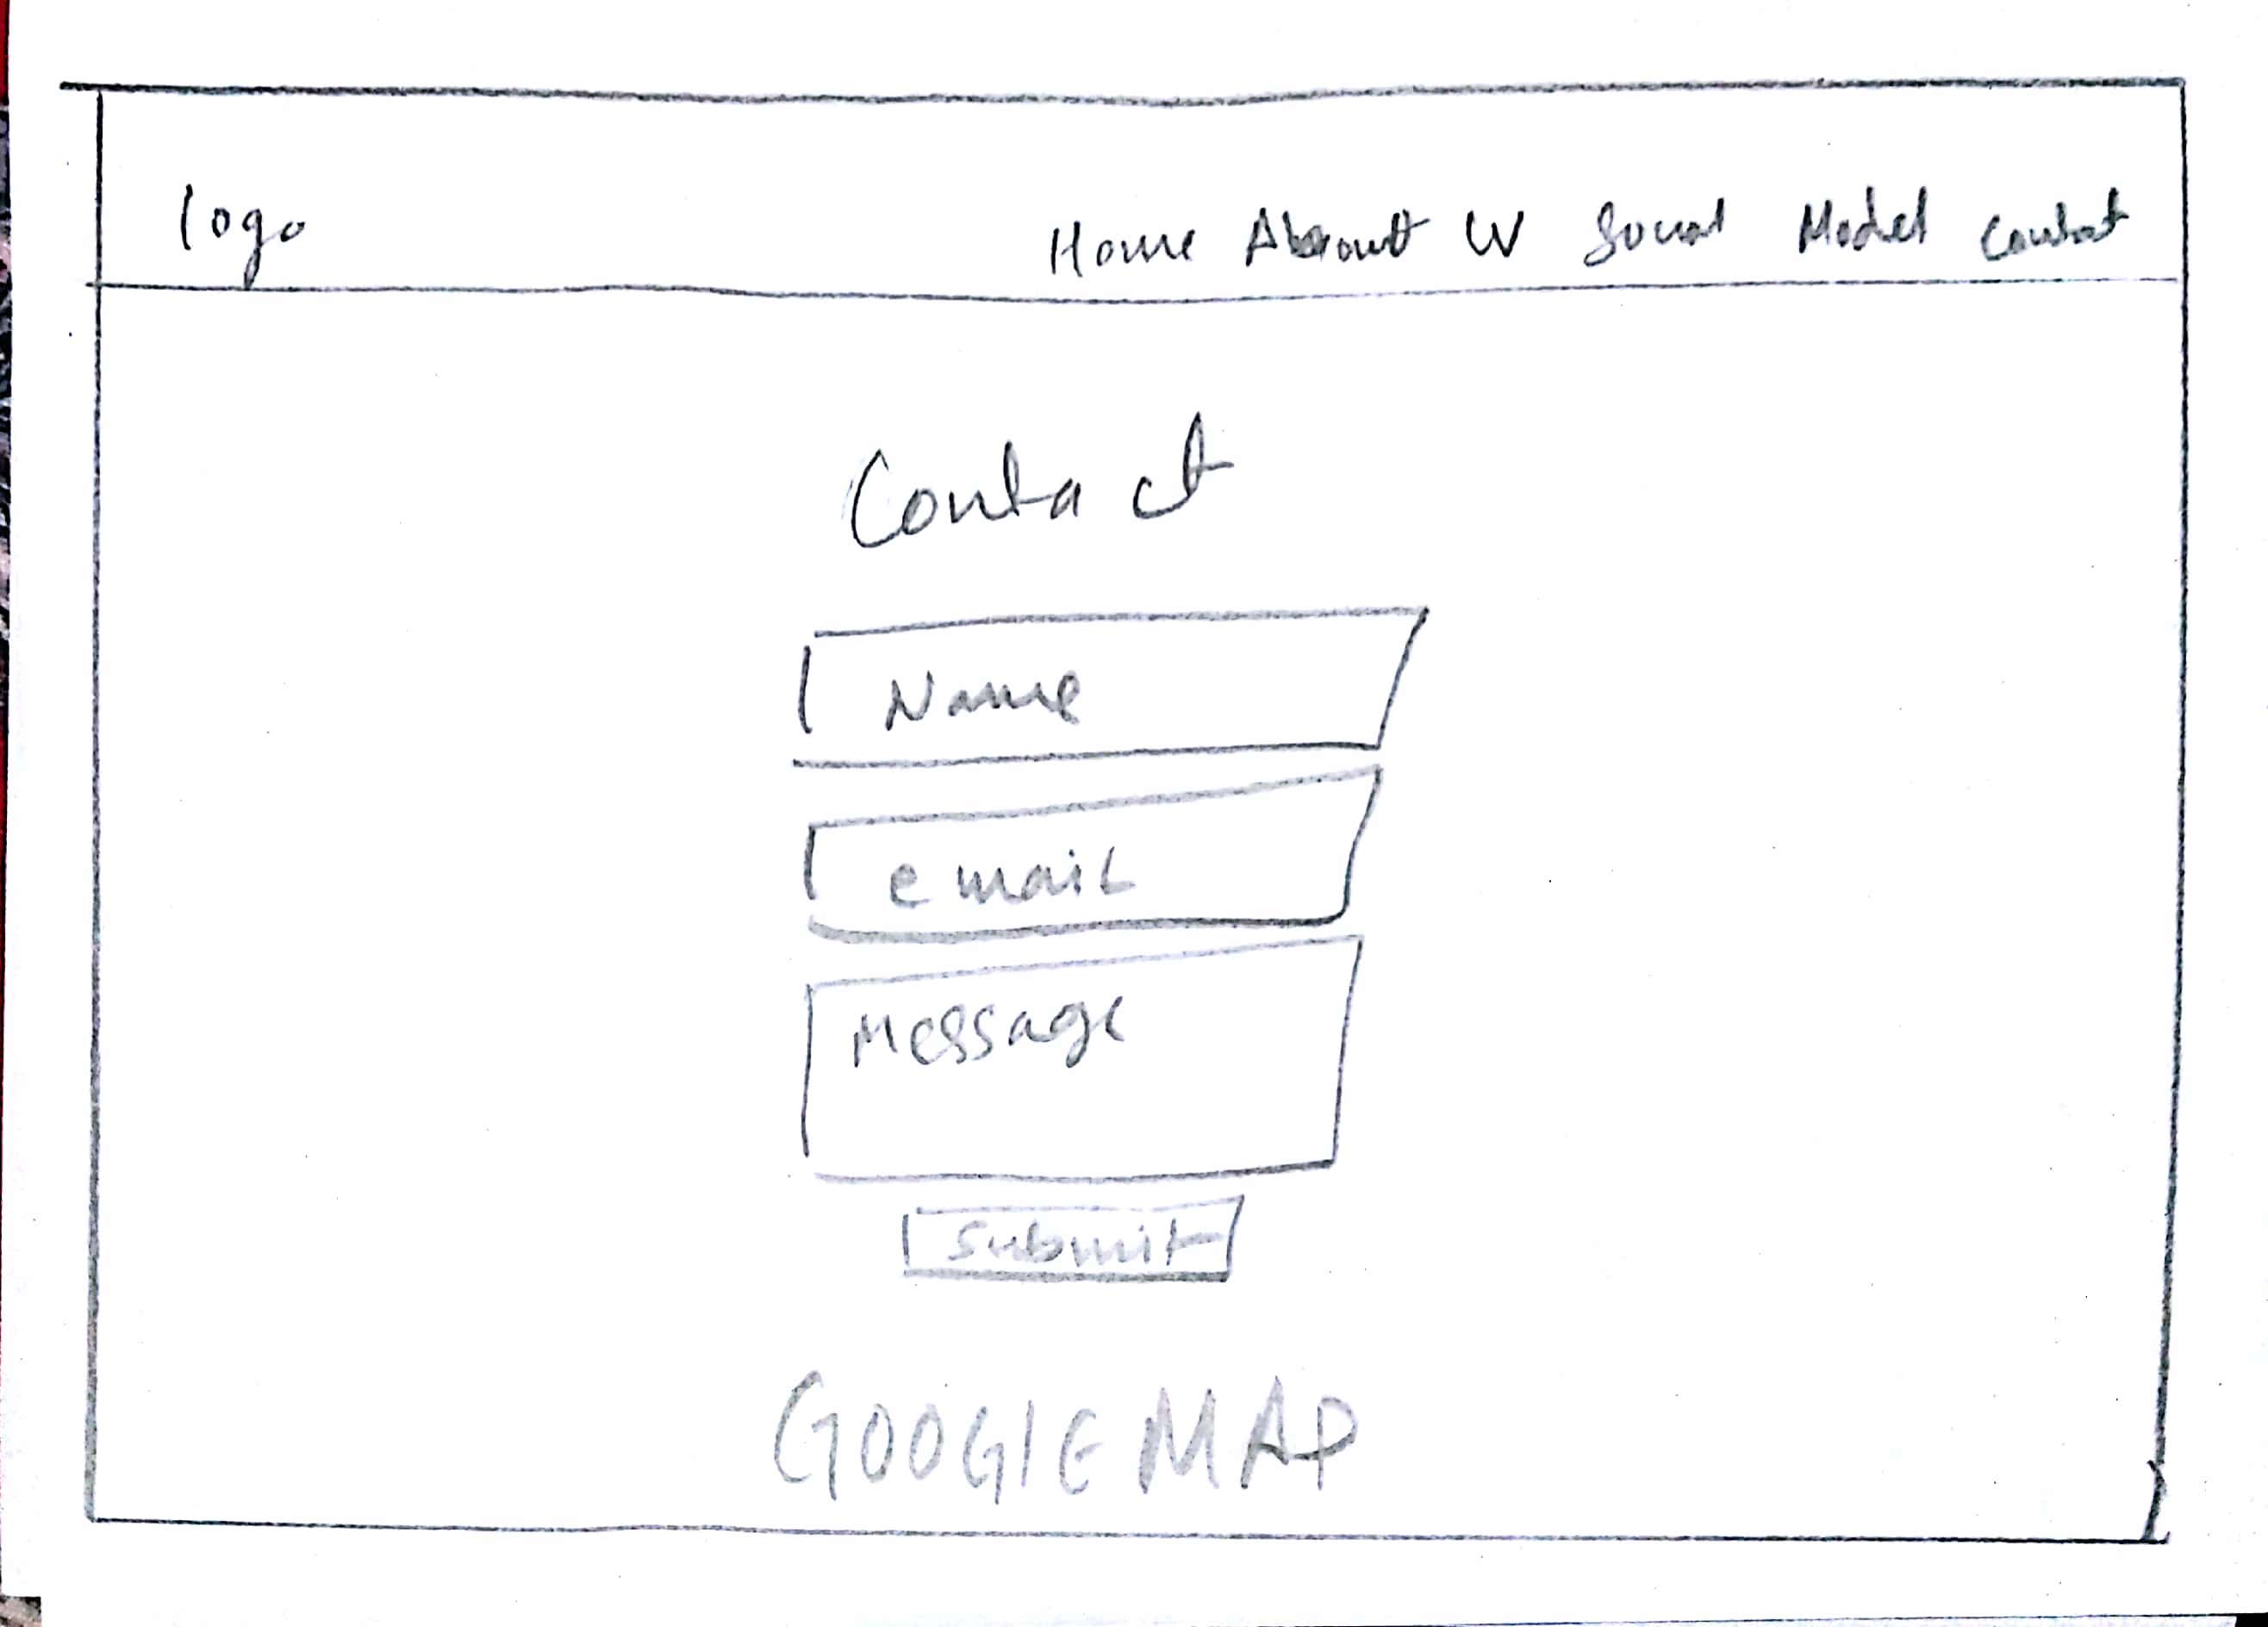 logo
Home About W Social Model Contact
Contact
Name
email
Message
Submit
GOOGLE MAP